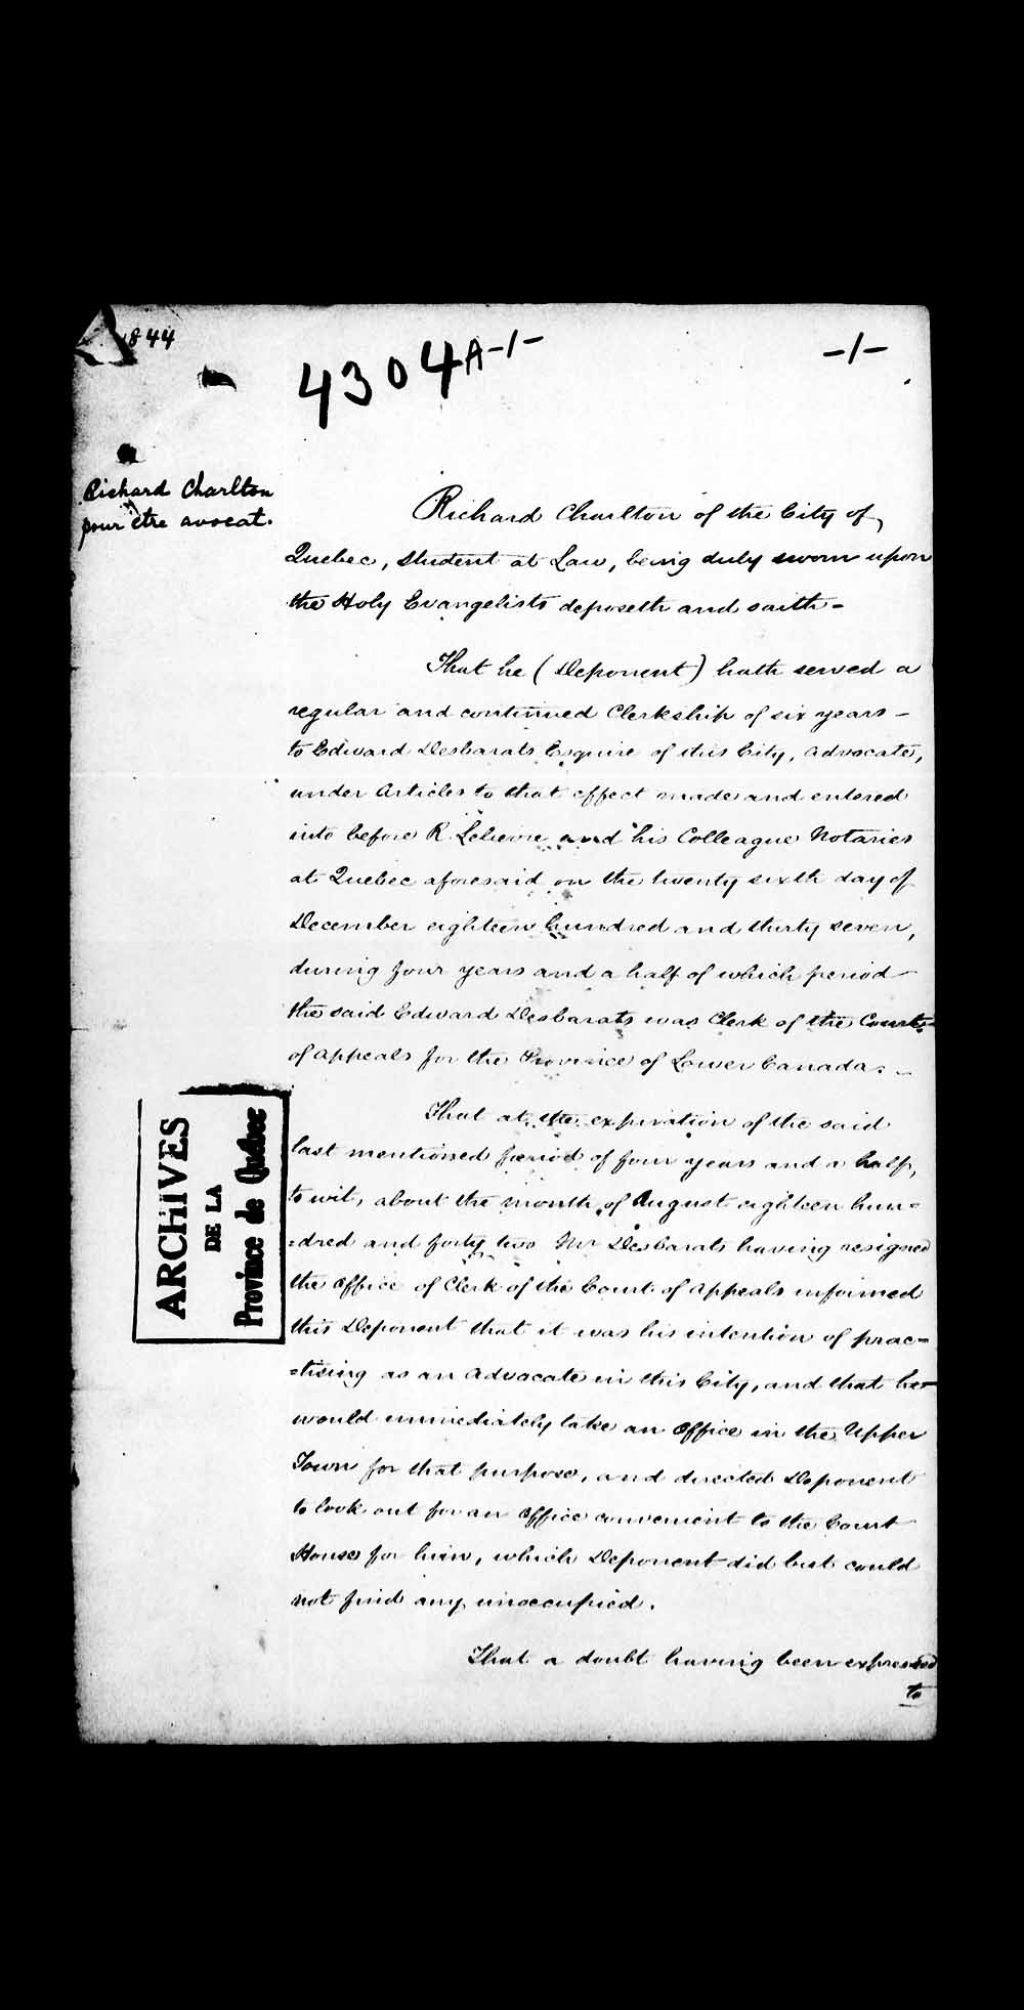 1844
4304 A-1-
-1-
Richard Charlton
pour être avocat.
Richard Charlton of the City of
Quebec, Student at Law, being duly sworn upon
the Holy Evangelists deposeth and saith =
That he (Deponent) hath served a
regular and continued Clerkship of six years -
to Edward Desbarats Esquire of this City, Advocate,
under Articles to that effect made and entered
into before R. and his Colleague Notaries
at Quebec aforesaid on the twenty sixth day of
December eighteen hundred and thirty seven,
during four years and a half of which period
the said Edward Desbarats was Clerk of the Court
of Appeals for the Province of Lower Canada. -
That at the expiration of the said
last mentioned period of four years and a half,
to wit, about the month of August eighteen hun=
=dred and forty two Mr Desbarats having resigned
the Office of Clerk of the Court of Appeals informed
this Deponent that it was his intention of prac=
=tising as an Advocate in this City, and that he
would immediately take an Office in the Upper
Town for that purpose, and directed Deponent
to look out for an Office convenient to the Court
House for him, which Deponent did but could
not find any unoccupied.
That a doubt having been expressed
to
ARCHIVES
DE LA
Province de Québec